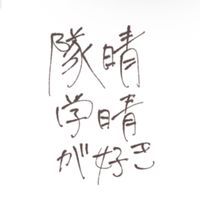 隊晴
学晴
が好き